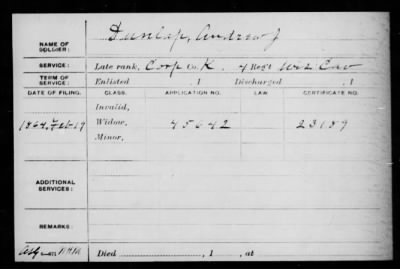 NAME OF SOLDIER: Dunlap, Andrew J
SERVICE: Late rank, Corp Co. K. 4 Reg't Wis Cav
TERM OF SERVICE: Enlisted , 1 Discharged , 1
DATE OF FILING. CLASS. APPLICATION NO. LAW. CERTIFICATE NO.
Invalid,
1864, Feb 19 Widow, 45642 23189
Minor,
ADDITIONAL SERVICES:
REMARKS:
Died , 1 , at